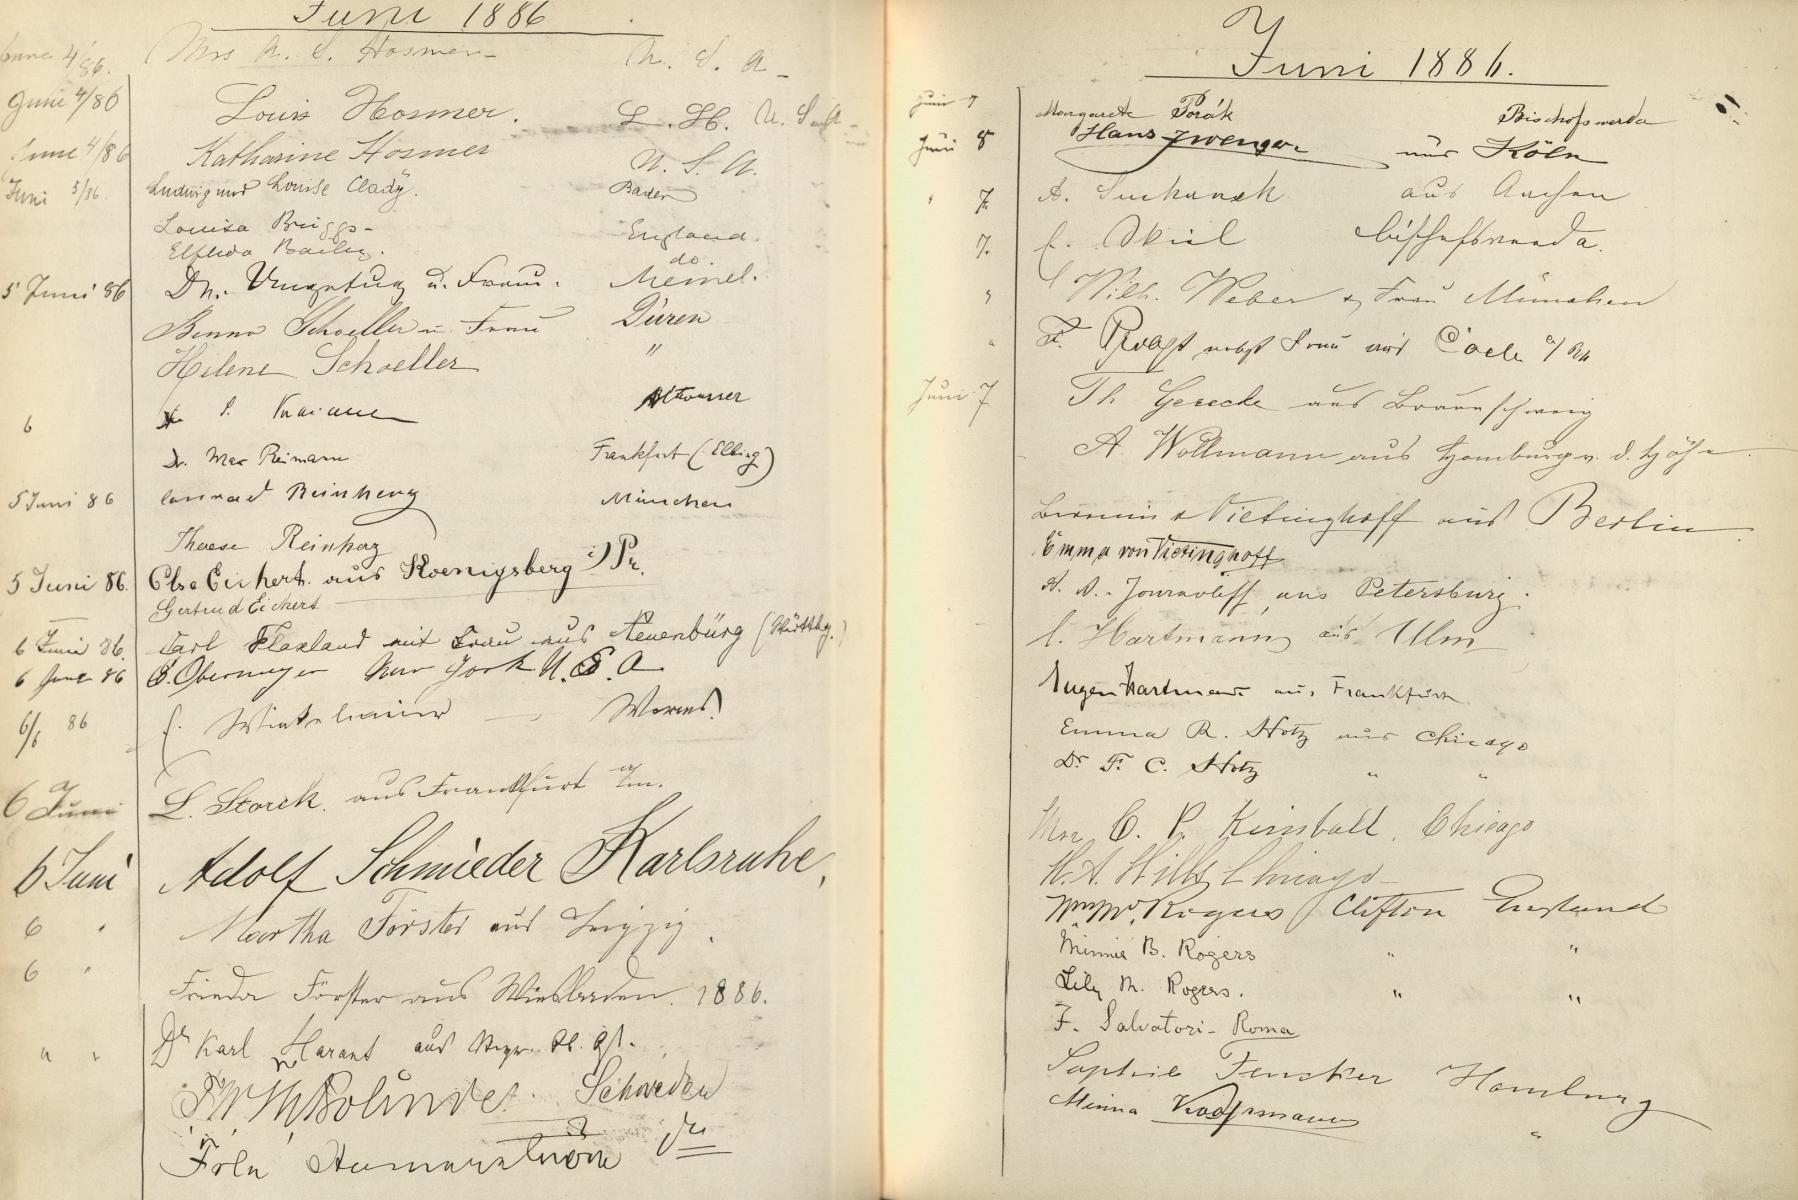 Juni 1886
June 4/86. Mrs A. C. Hosmer U. S. A.
Juni 4/86 Louis Hosmer. L. H. U. S. A.
June 4/86 Katharine Hosmer U. S. A.
Juni 5/86. Ludwig und Louise Clady. Baden
Louisa Briggs England.
Elfleda Bailey. do.
5 Juni 86 Dr. u. Frau. Memel.
Benno Schoeller u. Frau Düren
Helene Schoeller "
6 Altwasser
Dr. Max Reimann Frankfurt (Elbing)
5 Juni 86 Conrad Reinherz München
Therese Reinherz
5 Juni 86. Else Eichert. aus Koenigsberg i) Pr.
Gertrud Eichert
6 Juni 86. Carl Flaxland mit Frau aus Neuenbürg (Württbg.)
6 June 86 S. Obermeyer New York U. S. A.
6/6 86 Worms.
6 Juni L. Storck. aus Frankfurt a/m.
6 Juni Adolf Schmieder Karlsruhe.
6 " Martha Förster aus Leipzig.
6 " Frieda Förster aus Wiesbaden. 1886.
" " Dr Karl Harant aus
Schweden
Frln do
Juni 1886.
Juni 7 Margarete Porák Bischofswerda
Juni 8 Hans Zwenger aus Köln
" 7. A. Suchanek aus Aachen
7. Bischofswerda.
" Wilh. Weber & Frau München
" F. nebst Frau aus Coeln a/Rh
Juni 7 Th Gerecke aus Braunschweig
A. Wollmann aus Homburg v. d. Höhe.
Baronin v Vietinghoff aus Berlin
Emma von Vietinghoff
A. D. Jouravleff, aus Petersburg.
C. Hartmann aus Ulm
Eugen Hartmann aus Frankfurt
Emma R. Hotz aus Chicago
Dr. F. C. Hotz " "
Mrs C. P. Kimball. Chicago
H. A. Mills Chicago
Wm Mc. Rogers Clifton England
Minnie B. Rogers " "
Lily M. Rogers. " "
F. Salvatori - Roma
Sophie Fencker Hamburg
Minna Koopmann "